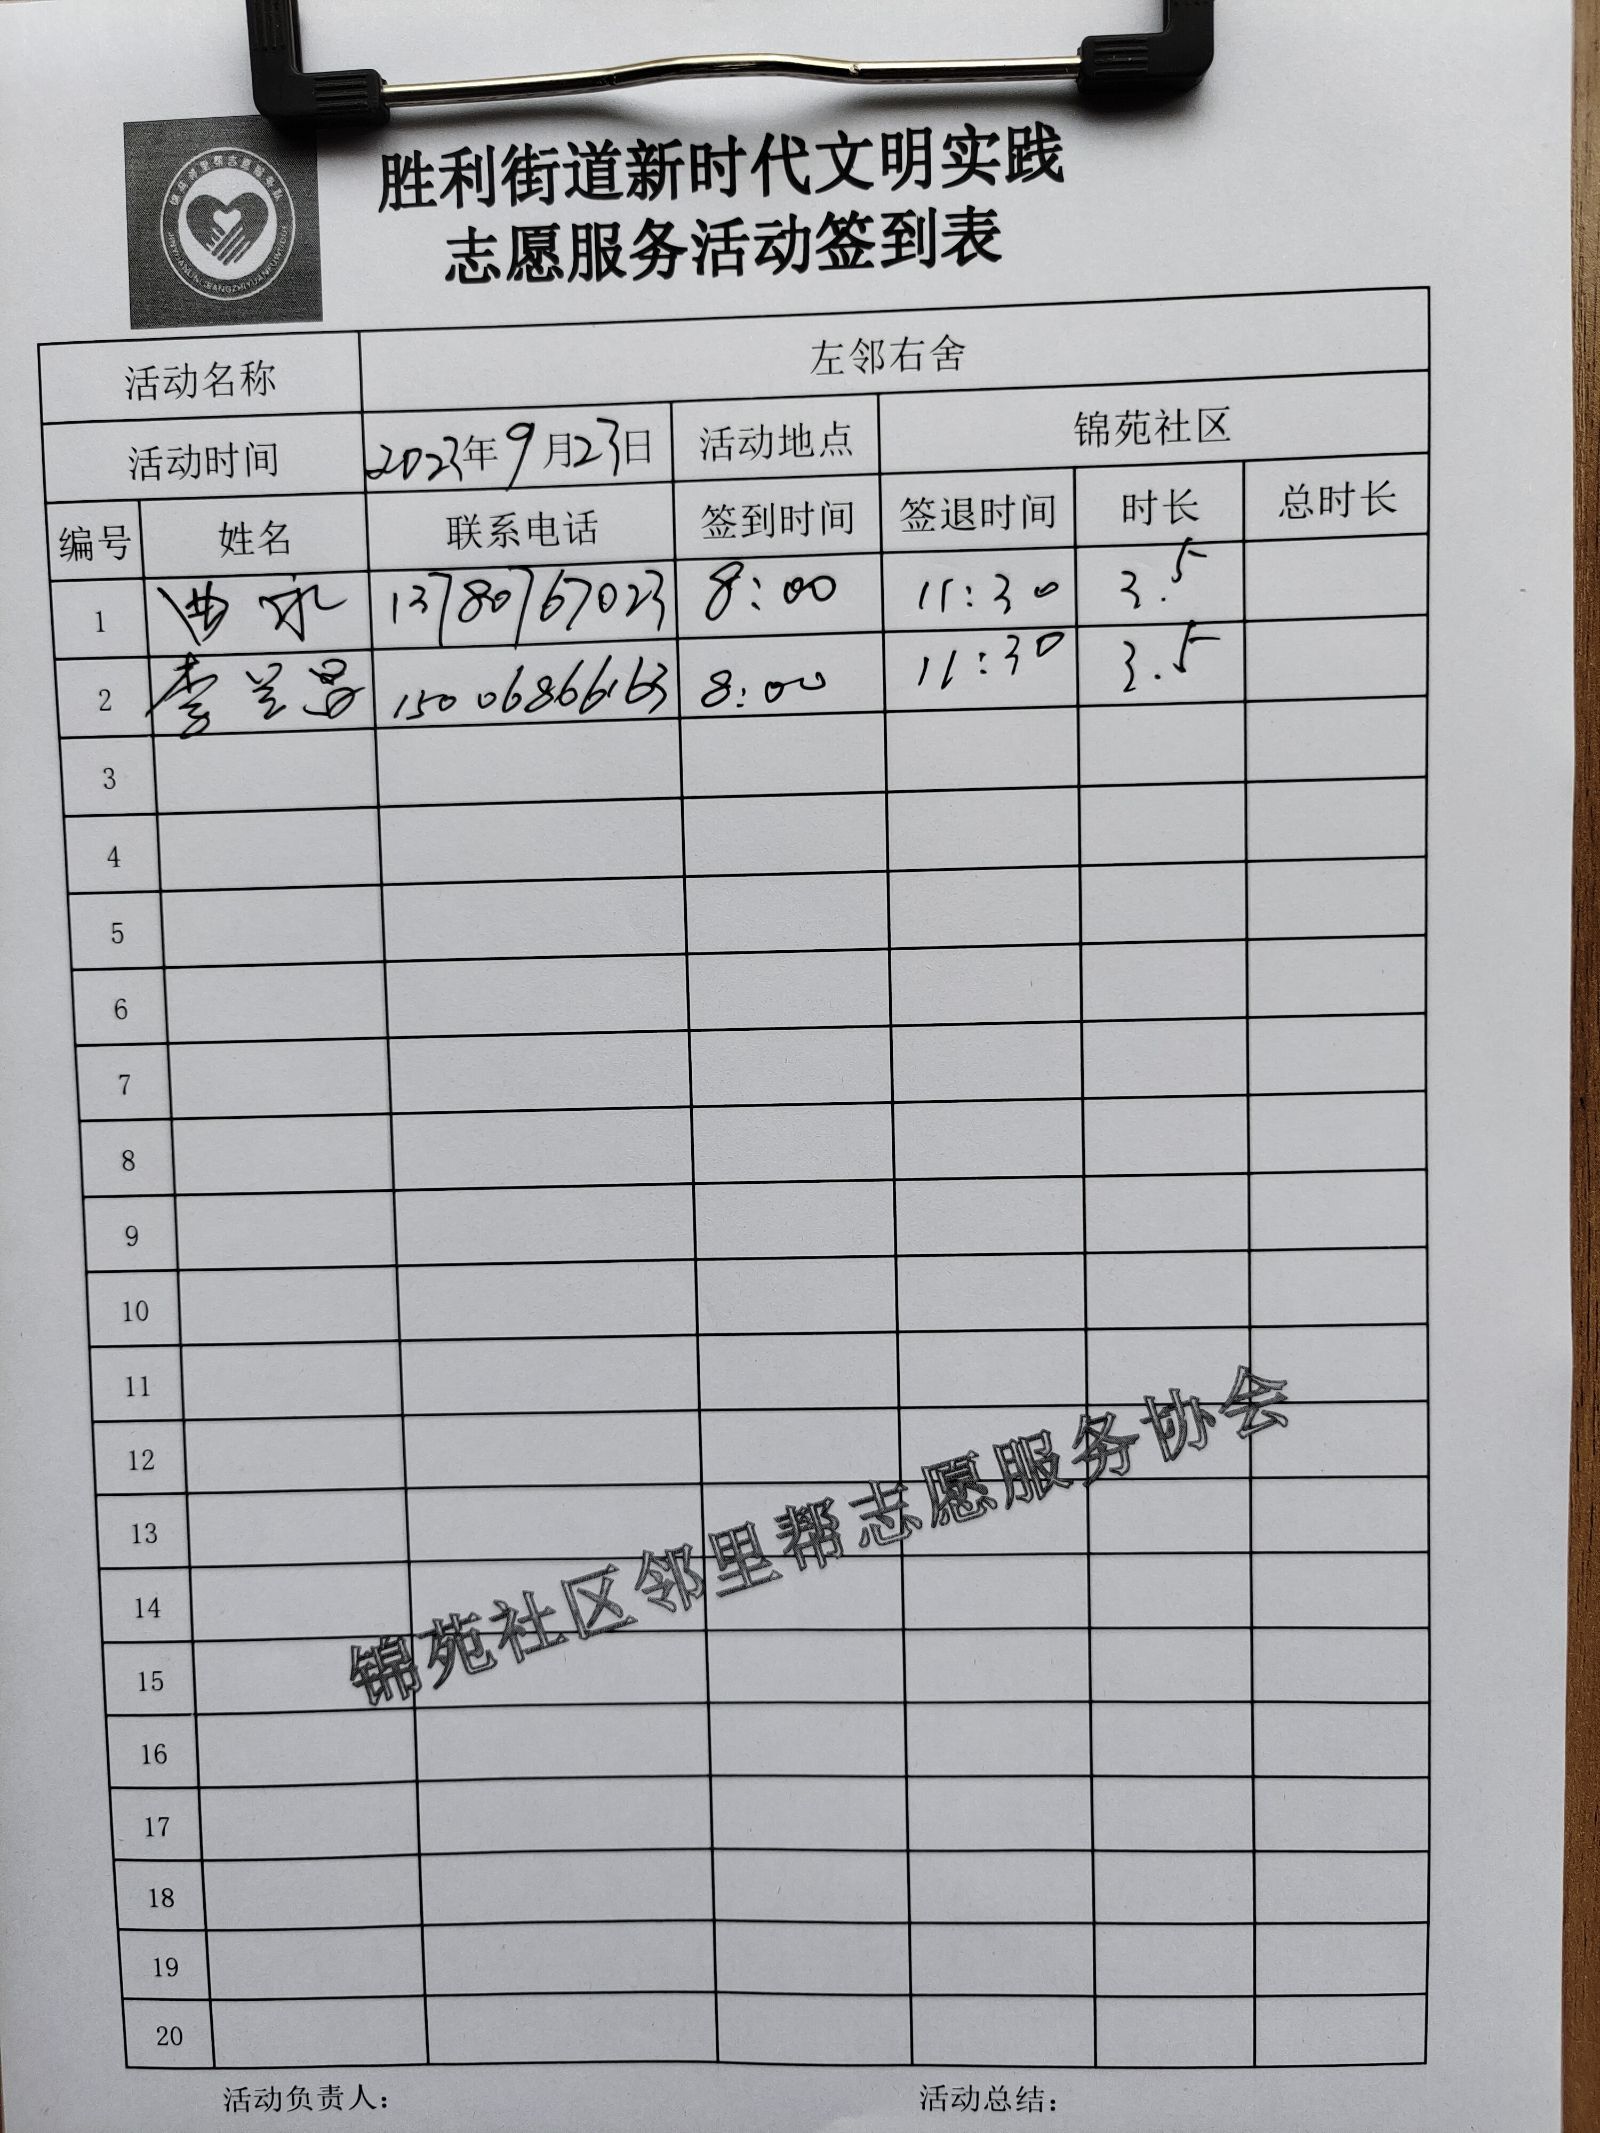 胜利街道新时代文明实践
志愿服务活动签到表
活动名称 左邻右舍
活动时间 2023年9月23日 活动地点 锦苑社区
编号 姓名 联系电话 签到时间 签退时间 时长 总时长
1 曲 13780767023 8:00 11:30 3.5
2 李兰 15006866163 8:00 11:30 3.5
3
4
5
6
7
8
9
10
11
12
13
14
15
16
17
18
19
20
锦苑社区邻里帮志愿服务协会
活动负责人: 活动总结: